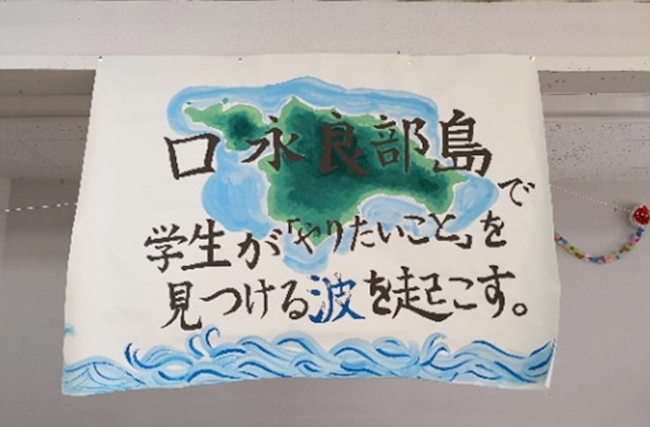 口永良部島で
学生が「やりたいこと」を
見つける波を起こす。